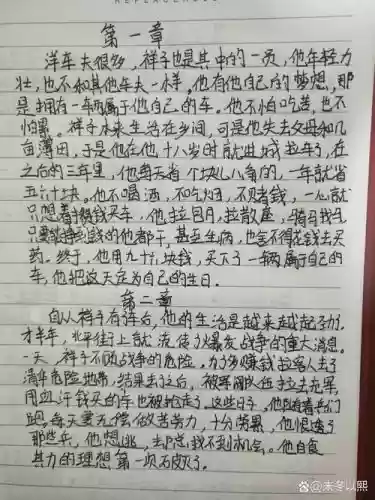 第一章
洋车夫很多，祥子也是其中的一员，他年轻力
壮，也不和其他车夫一样。他有他自己的梦想，那
是拥有一辆属于他自己的车。他不怕吃苦，也不
怕累。祥子本来生活在乡间，可是他失去父母和几
亩薄田，于是他在他十八岁时就进城拉车了，在
之后的三年里，他每天省个块儿八角的，一年就省
五六十块。他不喝酒，不吃烟，不赌钱，一心就
只想着挣钱买车，他拉包月，拉散座，
只要能挣到钱的他都干，甚至生病，也舍不得花钱去买
药。终于，他用九十六块钱，买下了一辆属于自己的
车，他把这天定为自己的生日。
第二章
自从祥子有洋车后，他的生活是越来越起劲了，
才半年，北平街上就流传了爆发战争的重大消息。
一天，祥子不顾战争的危险，为了多赚钱拉客人去了
清华危险地带，结果去了之后，被军阀大兵拉去充军，
用血汗钱买的车也被抢走了。这些日子，他跟着兵们
跑，每天要无偿做苦劳力，十分劳累，他恨透了
那些兵，他想逃，去总找不到机会。他自食
其力的理想第一次破灭了。
头条 @未冬以熙